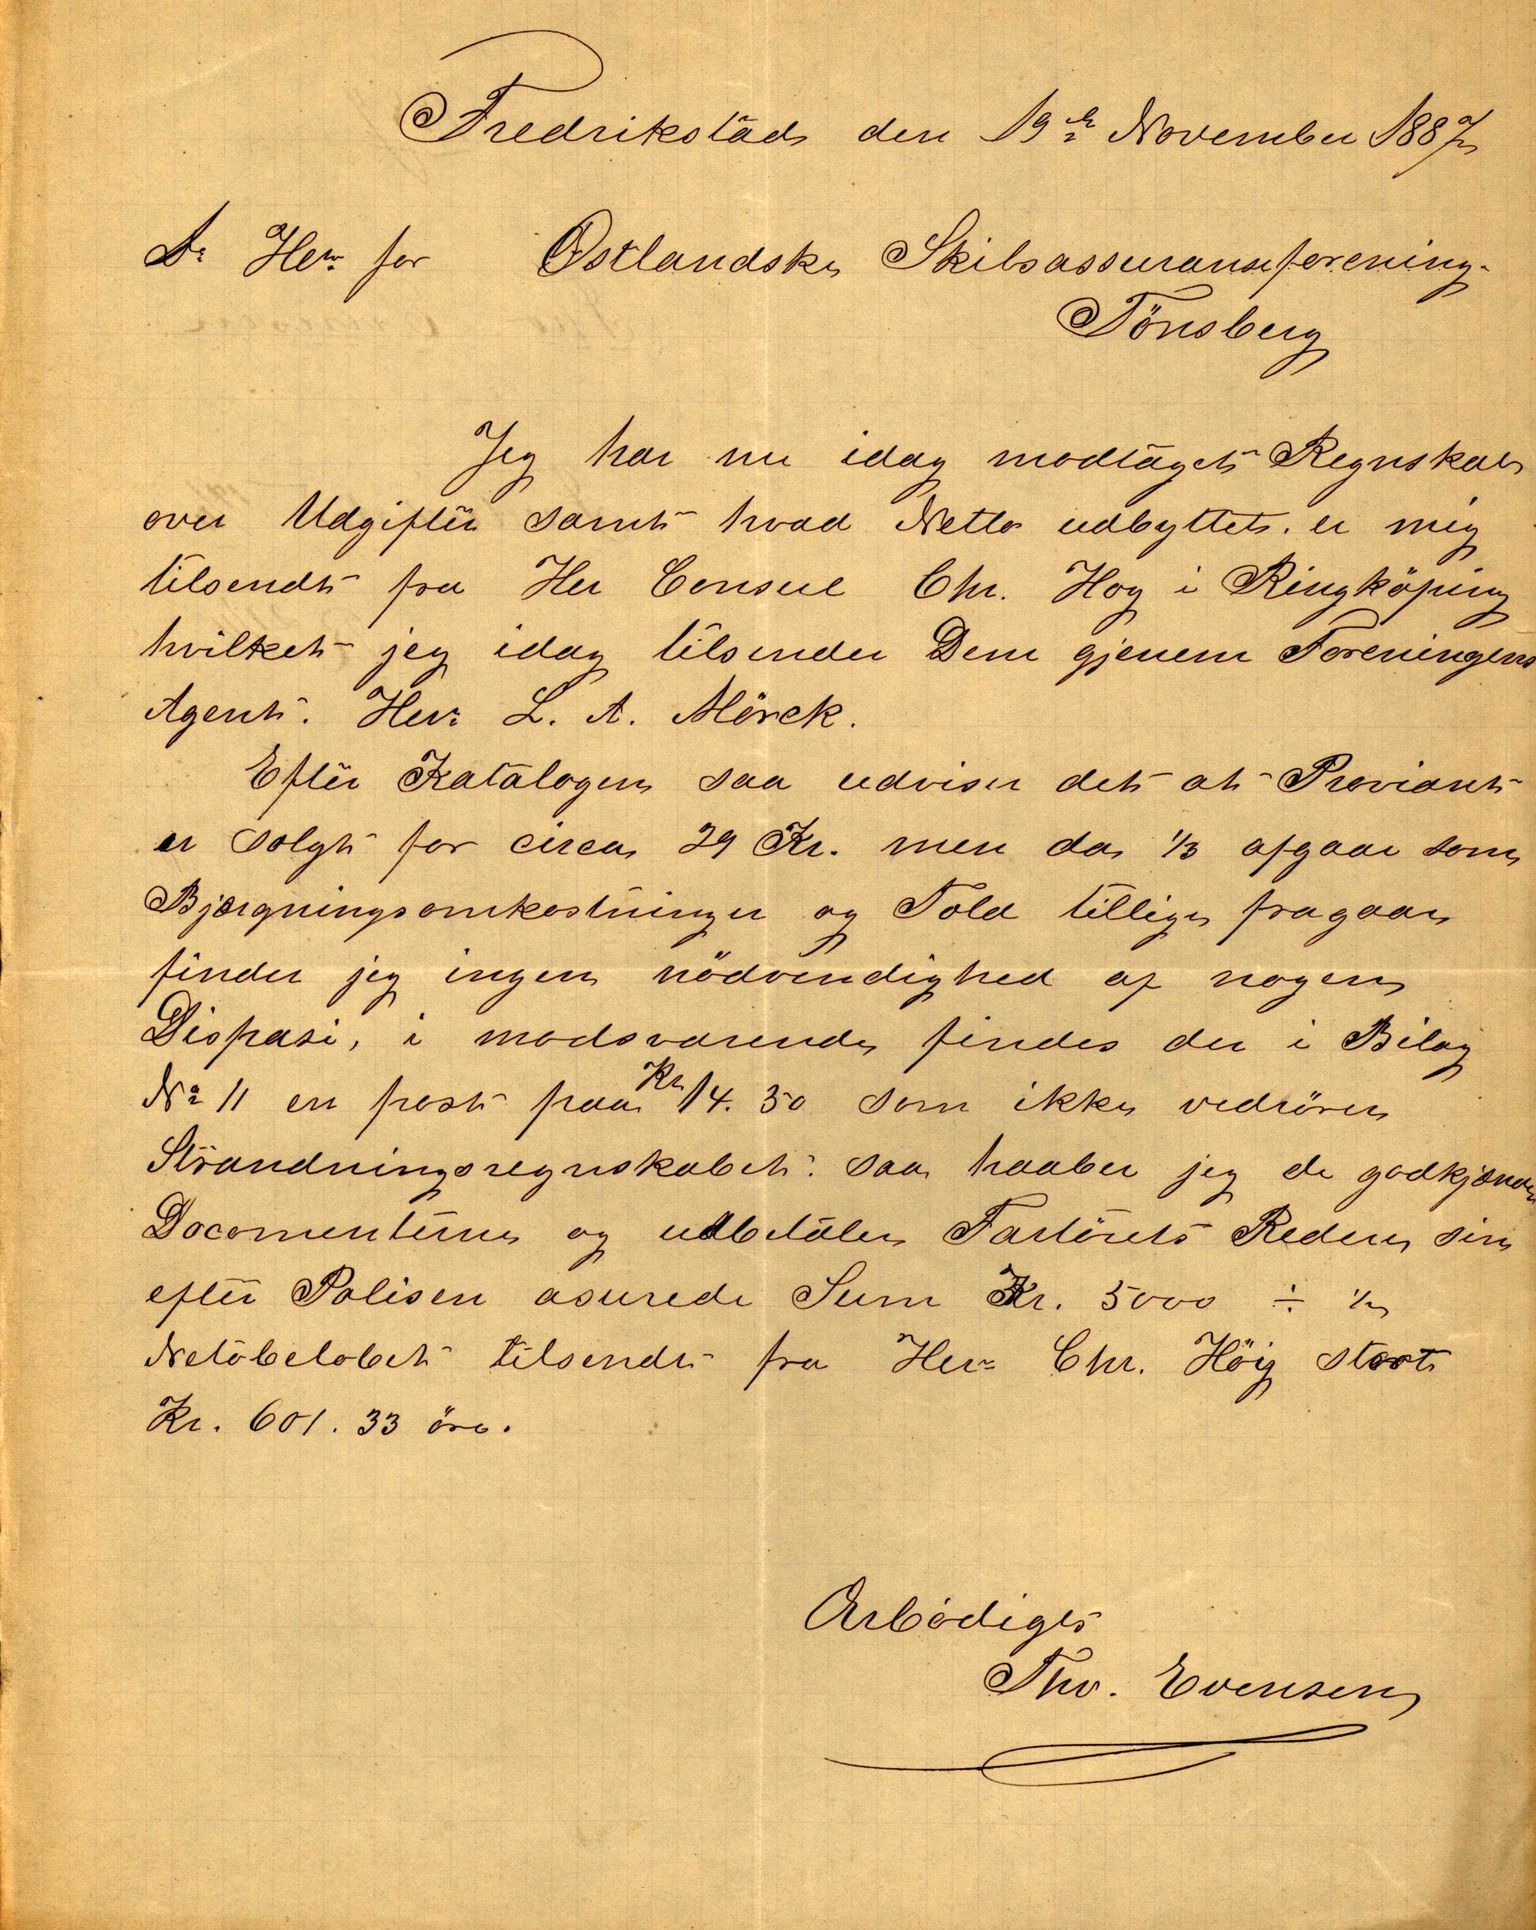 Fredrikstad den 19de November 1887
Dr Herr for Østlandske Skibsassuranseforening
Tönsberg
Jeg har nu idag modtaget Regnskab
over Udgifter samt hvad Netto udbyttet er mig
tilsendt fra Her Consul Chr. Hog i Ringköping
hvilket jeg idag tilsender Dem gjenem Foreningens
Agent. Herr L. A. Mörck.
Efter Katalogen saa udviser det at Proviant
er solgt for circa 29 Kr. men da 1/3 afgaar som
Bjærgningsomkostninger og Told tillige fragaar
finder jeg ingen nödvendighed af nogen
Dispasi, i modsvarende findes der i Bilag
No 11 en post paa Kr 14.50 som ikke vedrören
Strandningsregnskabet. saa haaber jeg de godkjænder
Documenterne og udbetaler Fartöiets Rederi sin
efter Polisen asurede Sum Kr. 5000 ÷
Netobelobet tilsendt fra Herr Chr. Höig stort
Kr. 601. 33 öre.
Arbödigst
Thv. Evensen